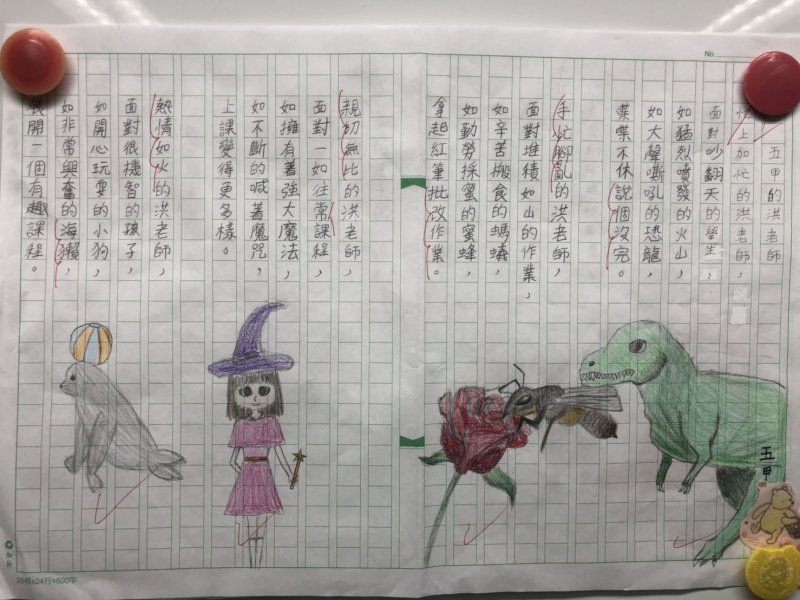 No.
五甲的洪老師
忙上加忙的洪老師,
面對吵翻天的學生,
如猛烈噴發的火山,
如大聲嘶吼的恐龍,
喋喋不休說個沒完。
手忙腳亂的洪老師,
面對堆積如山的作業,
如辛苦搬食的螞蟻,
如勤勞採蜜的蜜蜂,
拿起紅筆批改作業。
親切無比的洪老師,
面對一如往常課程,
如擁有著強大魔法,
如不斷的喊著魔咒,
上課變得更多樣。
熱情如火的洪老師,
面對很機智的孩子,
如開心玩耍的小狗,
如非常興奮的海獺,
展開一個有趣課程。
五甲
25格x24行=600字